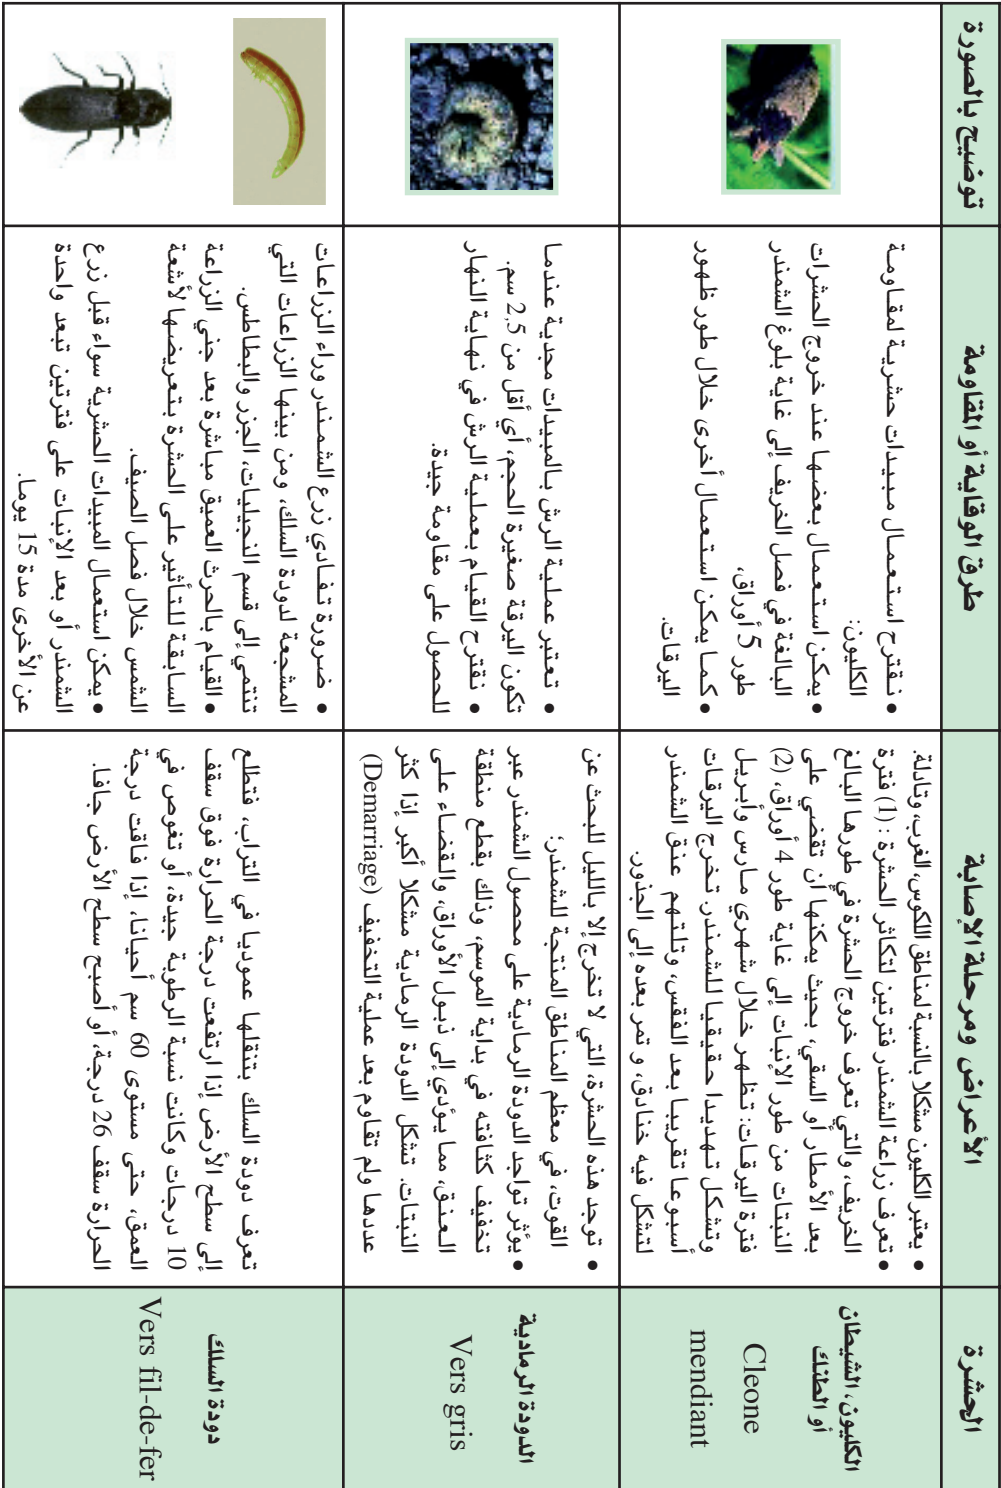 الحشرة
الأعراض ومرحلة الإصابة
طرق الوقاية أو المقاومة
توضيح بالصورة
الكليون، الشيطان
أو الطنك
Cleone
mendiant
• يعتبر الكليون مشكلا بالنسبة لمناطق اللكوس، الغرب، وتادلة.
• تعرف زراعة الشمندر فترتين لتكاثر الحشرة : (1) فترة
الخريف، والتي تعرف خروج الحشرة في طورها البالغ
بعد الأمطار أو السقي، بحيث يمكنها ان تقضي على
النبتات من طور الإنبات إلى غاية طور 4 أوراق، (2)
فترة اليرقات: تظهر خلال شهري مارس وأبريل
وتشكل تهديدا حقيقيا للشمندر. تخرج اليرقات
أسبوعا تقريبا بعد الفقس، وتلتهم عنق الشمندر
لتشكل فيه خنادق، و تمر بعده إلى الجذور.
• نقترح استعمال مبيدات حشرية لمقاومة
الكليون:
• يمكن استعمال بعضها عند خروج الحشرات
البالغة في فصل الخريف إلى غاية بلوغ الشمندر
طور 5 أوراق،
• كما يمكن استعمال أخرى خلال طور ظهور
اليرقات.
الدودة الرمادية
Vers gris
• توجد هذه الحشرة، التي لا تخرج إلا بالليل للبحث عن
القوت، في معظم المناطق المنتجة للشمندر؛
• يؤثر تواجد الدودة الرمادية على محصول الشمندر عبر
تخفيف كثافته في بداية الموسم، وذلك بقطع منطقة
العنق، مما يؤدي إلى ذبول الأوراق، والقضاء على
النبتات. تشكل الدودة الرمادية مشكلا أكبر إذا كثر
عددها ولم تقاوم بعد عملية التخفيف (Demarriage)
• تعتبر عملية الرش بالمبيدات مجدية عندما
تكون اليرقة صغيرة الحجم، أي أقل من 2,5 سم.
• نقترح القيام بعملية الرش في نهاية النهار
للحصول على مقاومة جيدة.
دودة السلك
Vers fil-de-fer
تعرف دودة السلك بتنقلها عموديا في التراب، فتطلع
إلى سطح الأرض إذا ارتفعت درجة الحرارة فوق سقف
10 درجات وكانت نسبة الرطوبة جيدة، أو تغوص في
العمق، حتى مستوى 60 سم أحيانا، إذا فاقت درجة
الحرارة سقف 26 درجة، أو أصبح سطح الأرض جافا.
• ضرورة تفادي زرع الشمندر وراء الزراعات
المشجعة لدودة السلك، ومن بينها الزراعات التي
تنتمي إلى قسم النجيليات، الجزر والبطاطس.
• القيام بالحرث العميق مباشرة بعد جني الزراعة
السابقة للتأثير على الحشرة بتعريضها لأشعة
الشمس خلال فصل الصيف.
• يمكن استعمال المبيدات الحشرية سواء قبل زرع
الشمندر أو بعد الإنبات على فترتين تبعد واحدة
عن الأخرى مدة 15 يوما.